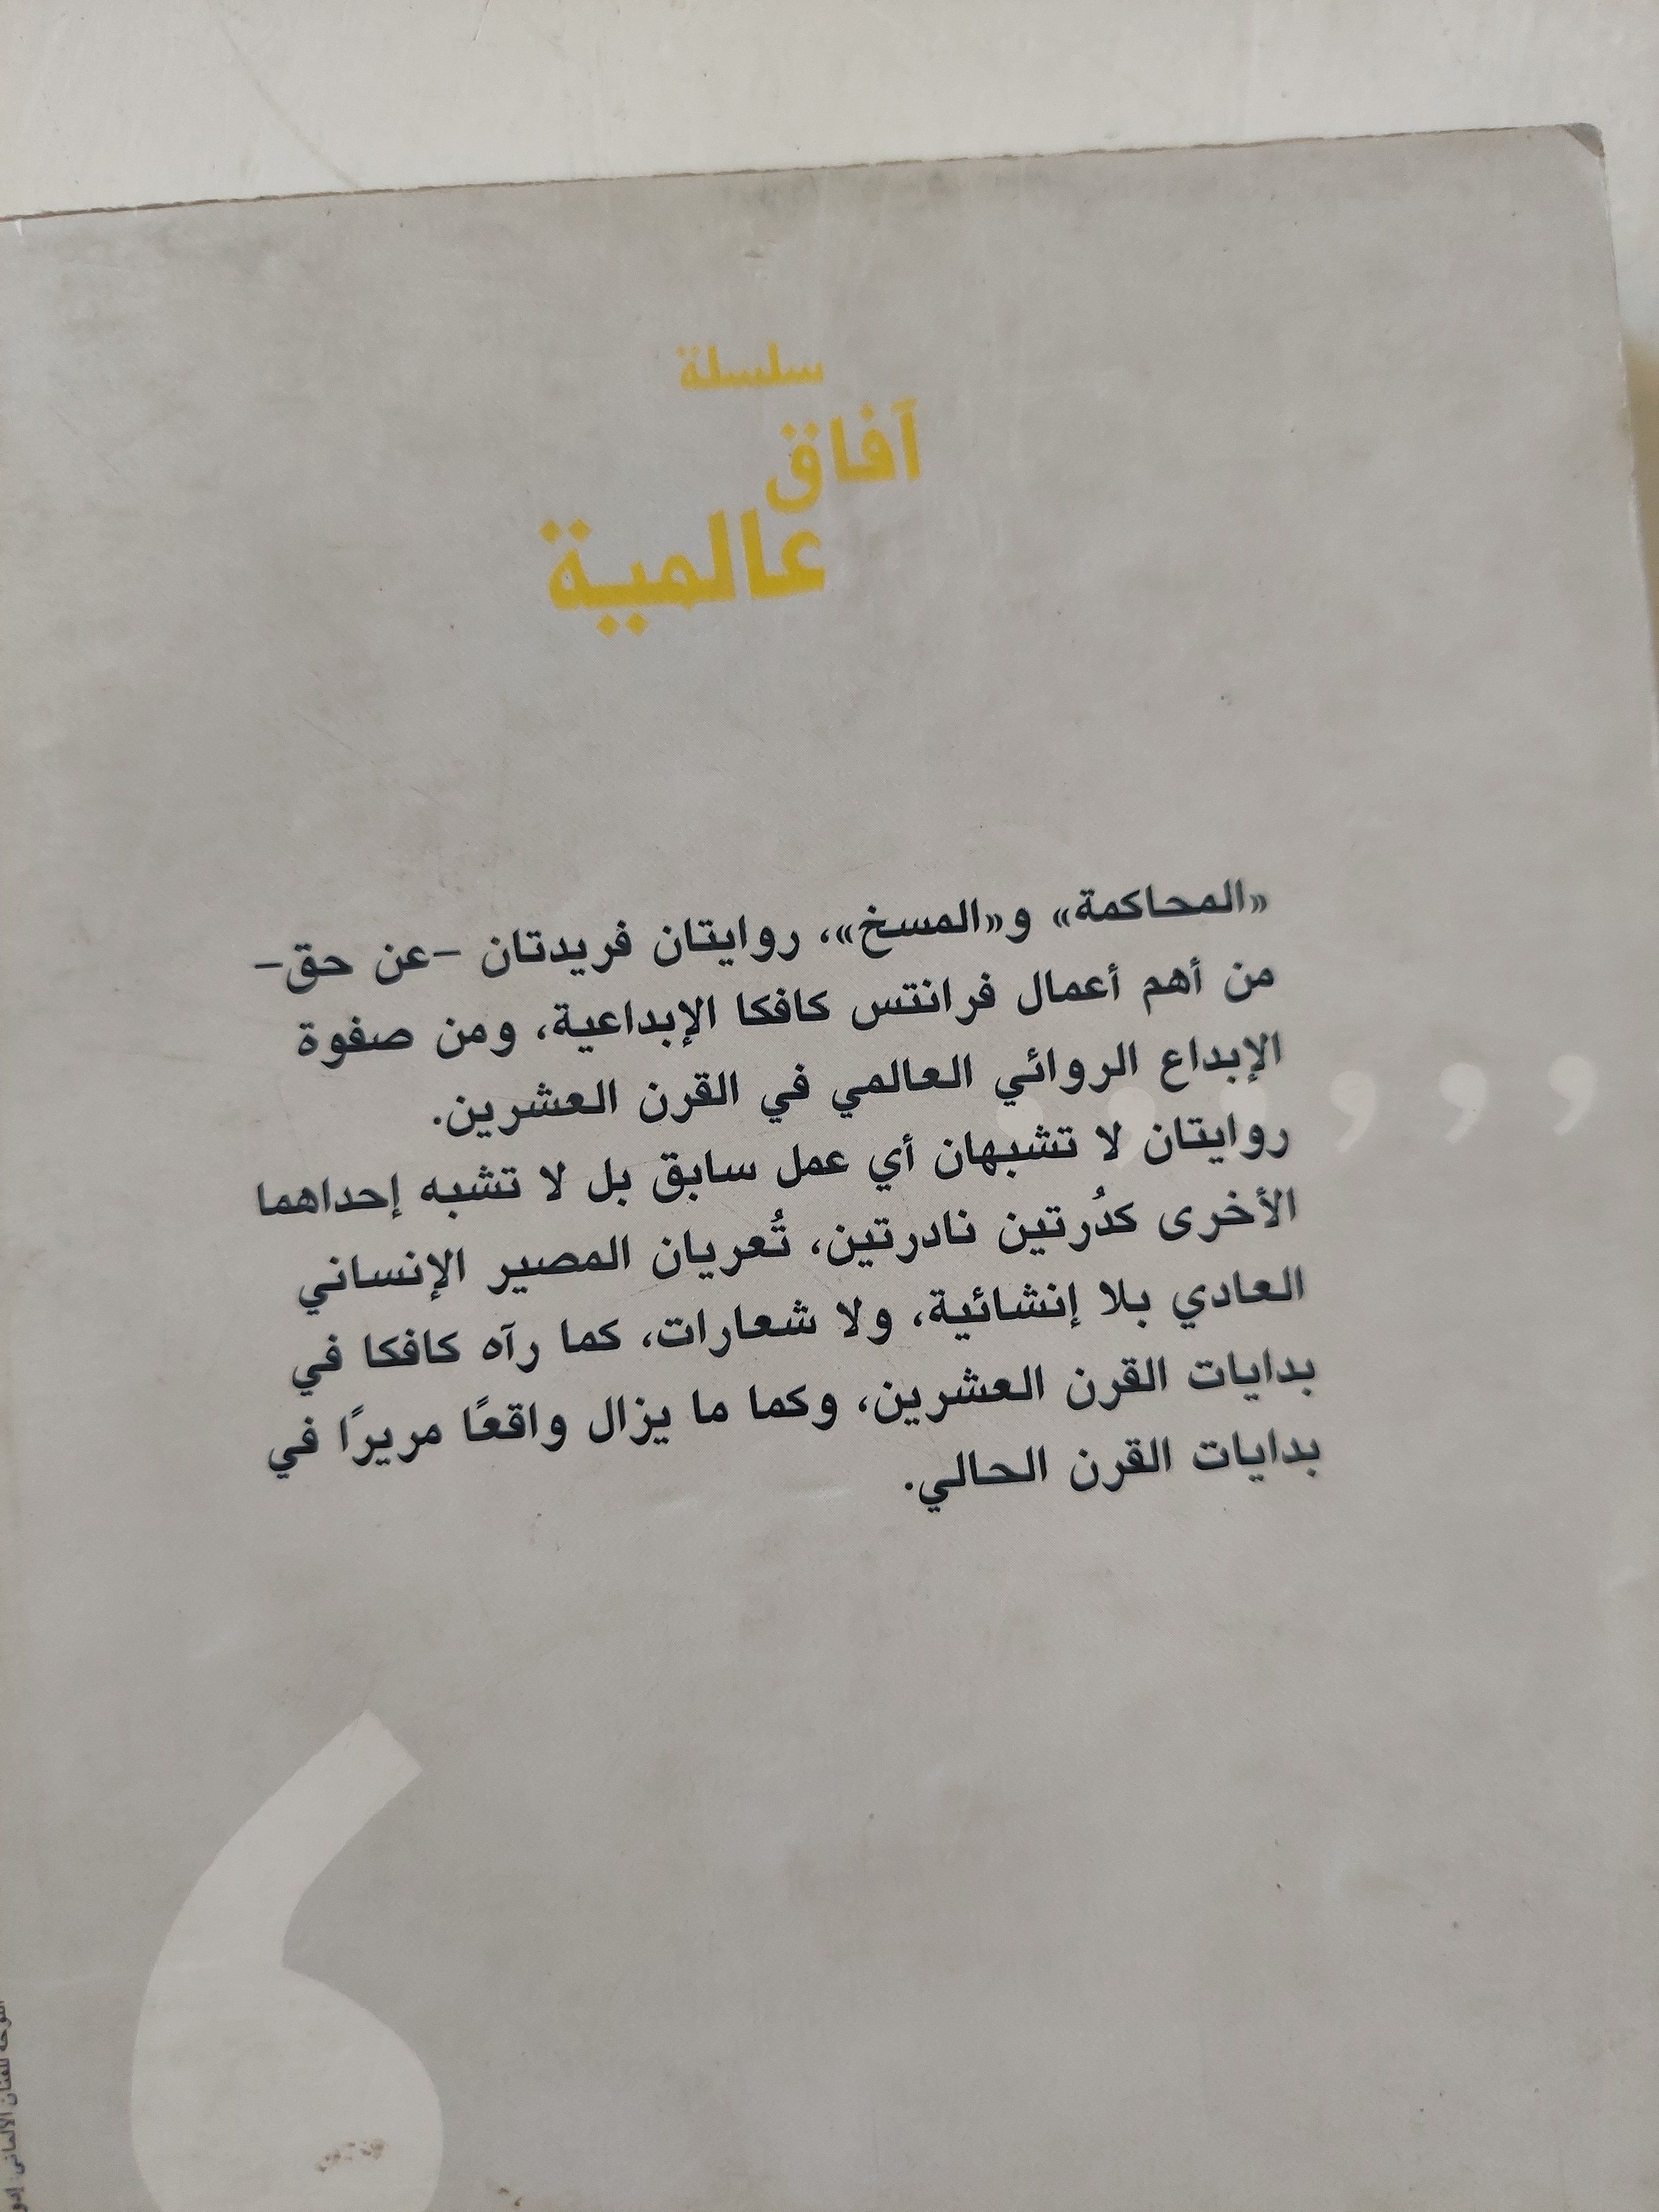 سلسلة
آفاق
عالمية
«المحاكمة» و«المسخ»، روايتان فريدتان –عن حق–
من أهم أعمال فرانتس كافكا الإبداعية، ومن صفوة
الإبداع الروائي العالمي في القرن العشرين.
روايتان لا تشبهان أي عمل سابق بل لا تشبه إحداهما
الأخرى كدُرتين نادرتين، تُعريان المصير الإنساني
العادي بلا إنشائية، ولا شعارات، كما رآه كافكا في
بدايات القرن العشرين، وكما ما يزال واقعًا مريرًا في
بدايات القرن الحالي.
اللوحة للفنان الألماني: